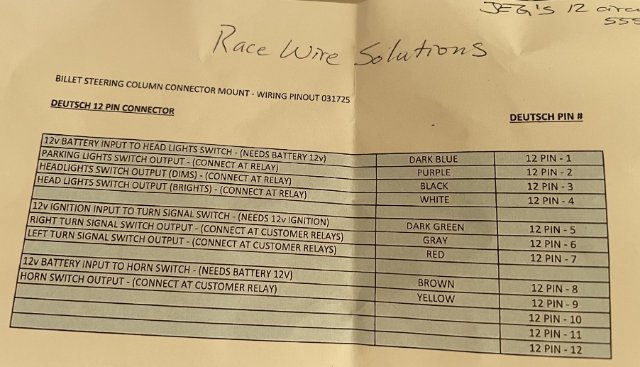 JEG'S 12
555
Race Wire Solutions
BILLET STEERING COLUMN CONNECTOR MOUNT - WIRING PINOUT 031725
DEUTSCH 12 PIN CONNECTOR DEUTSCH PIN #
12v BATTERY INPUT TO HEAD LIGHTS SWITCH - (NEEDS BATTERY 12v) DARK BLUE 12 PIN - 1
PARKING LIGHTS SWITCH OUTPUT - (CONNECT AT RELAY) PURPLE 12 PIN - 2
HEADLIGHTS SWITCH OUTPUT (DIMS) - (CONNECT AT RELAY) BLACK 12 PIN - 3
HEAD LIGHTS SWITCH OUTPUT (BRIGHTS) - (CONNECT AT RELAY) WHITE 12 PIN - 4
12v IGNITION INPUT TO TURN SIGNAL SWITCH - (NEEDS 12v IGNITION) DARK GREEN 12 PIN - 5
RIGHT TURN SIGNAL SWITCH OUTPUT - (CONNECT AT CUSTOMER RELAYS) GRAY 12 PIN - 6
LEFT TURN SIGNAL SWITCH OUTPUT - (CONNECT AT CUSTOMER RELAYS) RED 12 PIN - 7
12v BATTERY INPUT TO HORN SWITCH - (NEEDS BATTERY 12V) BROWN 12 PIN - 8
HORN SWITCH OUTPUT - (CONNECT AT CUSTOMER RELAY) YELLOW 12 PIN - 9
12 PIN - 10
12 PIN - 11
12 PIN - 12